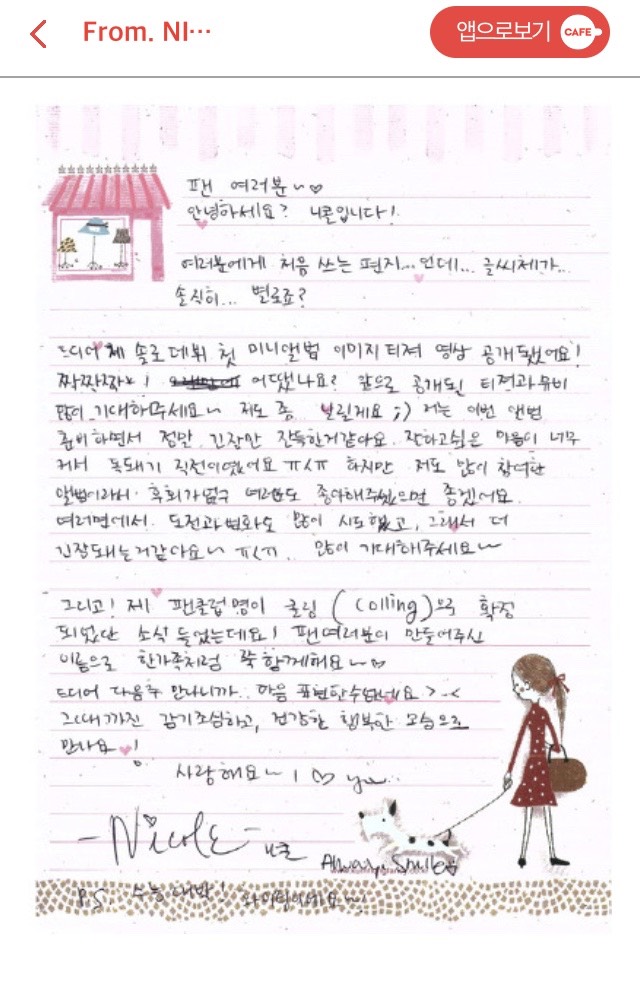 From. NI…
앱으로보기
CAFE
팬 여러분~♡
안녕하세요? 니콜입니다!
여러분에게 처음 쓰는 편지...인데... 글씨체가..
솔직히... 별로죠?
드디어 제 솔로 데뷔 첫 미니앨범 이미지 티져 영상 공개됐어요!
짝짝짝! 어땠나요? 앞으로 공개될 티져과 뮤비
많이 기대해주세요~ 저도 좀 떨릴게요 ;) 저는 이번 앨범
준비하면서 정말 긴장만 잔뜩한거같아요. 잘하고싶은 마음이 너무
커서 독돼기 직전이였어요 ㅠㅅㅠ 하지만 저도 많이 참여한
앨범이라서 후회가없구 여러분도 좋아해주셨으면 좋겠어요.
여러면에서 도전과 변화도 많이 시도했고, 그래서 더
긴장돼는거같아요~ ㅠㅅㅠ. 많이 기대해주세요~
그리고! 제 팬클럽명이 콜링 (Colling)으로 확정
되었단 소식 들었는데요! 팬여러분이 만들어주신
이름으로 한가족처럼 쭉 함께해요~♡
드디어 다음주 만나니까.. 마음 표현할수있네요 >.<
그때까진 감기조심하고, 건강한 행복한 모습으로
만나요♥!
사랑해요~ I ♡ you..
-Nicole- 니콜
Always Smile
P.S 수능대박! 화이팅이에요~!